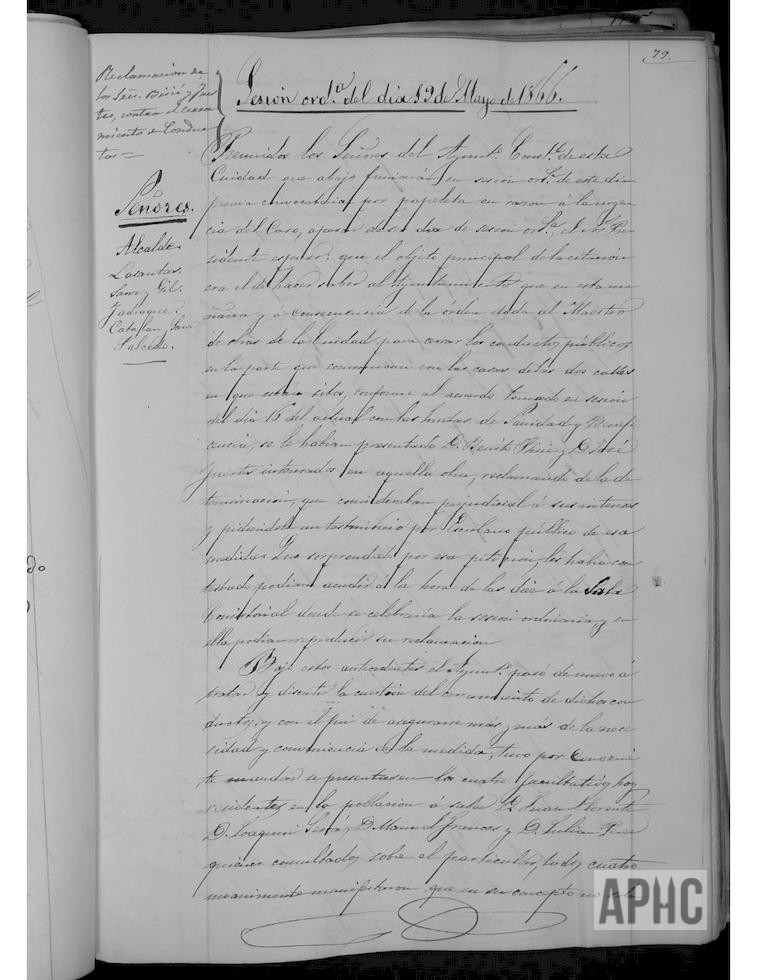 79.
Reclamacion de
los Sres. Biní y Fuer-
tes, contra el cerra-
miento de conduc-
tos=
Sesión ord.a del día 19 de Mayo de 1866.
Señores.
Alcalde.
Lasantas.
Sanz y Gil.
Jadraque.
Catalan, Sanz
Salcedo.
Reunidos los Señores del Ayunt.o Const.l de esta
Ciudad que abajo firmarán en sesion ord.a de este dia
prévia convocatoria por papeleta en razon á la urgen
cia del Caso, apesar de ser dia de sesion ord.a, el Sr. Pre
sidente espuso: que el objeto principal de la citacion
era el de hacer saber al Ayuntamiento que en esta ma
ñana y á consecuencia de la órden dada al Maestro
de obras de la Ciudad para cerrar los conductos públicos
en la parte que comunican con las casas de las dos calles
en que están sitos, conforme al acuerdo tomado en sesion
del dia 16 del actual con las Juntas de Sanidad y Benefi
cencia, se le habian presentado D. Benito y D. José
Fuertes interesados en aquella obra, reclamando de la de
terminacion, que consideraban perjudicial á sus intereses
y pidiendole un testimonio por Escribano público de esa
medida. Que sorprendido por esa peticion, les habia con
testado podian acudir á la hora de las diez á la Sala
Consistorial donde se celebraria la sesion ordinaria, y en
ella podian reproducir su reclamacion
Bajo estos antecedentes el Ayunt.o pasó de nuevo á
tratar y discutir la cuestion del cerramiento de dichos con
ductos, y con el fin de asegurarse más y más de la nece
sidad y conveniencia de la medida, tuvo por convenien
te mandar se presentasen los cuatro facultativos hoy
residentes en la poblacion á saber D. Juan Llorente
D. Joaquin D. Manuel Frances y D. Julian
quienes consultados sobre el particular, todos cuatro
unanimemente manifestaron que en su concepto no solo
APHC